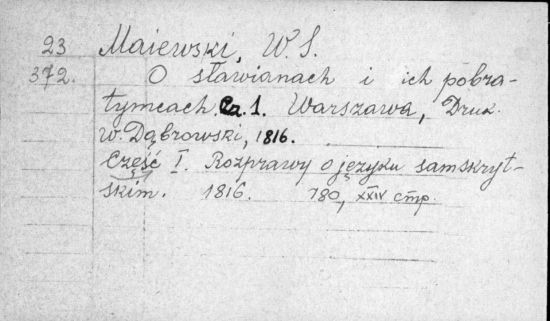 23 Maiewski, W. S.
372. O sławianach i ich pobra-
tymcach. Cz. 1. Warszawa, Druk.
w. Dąbrowski, 1816.
Część I. Rozprawy o języku samskryt-
skim. 1816. 180, XXIV стр.